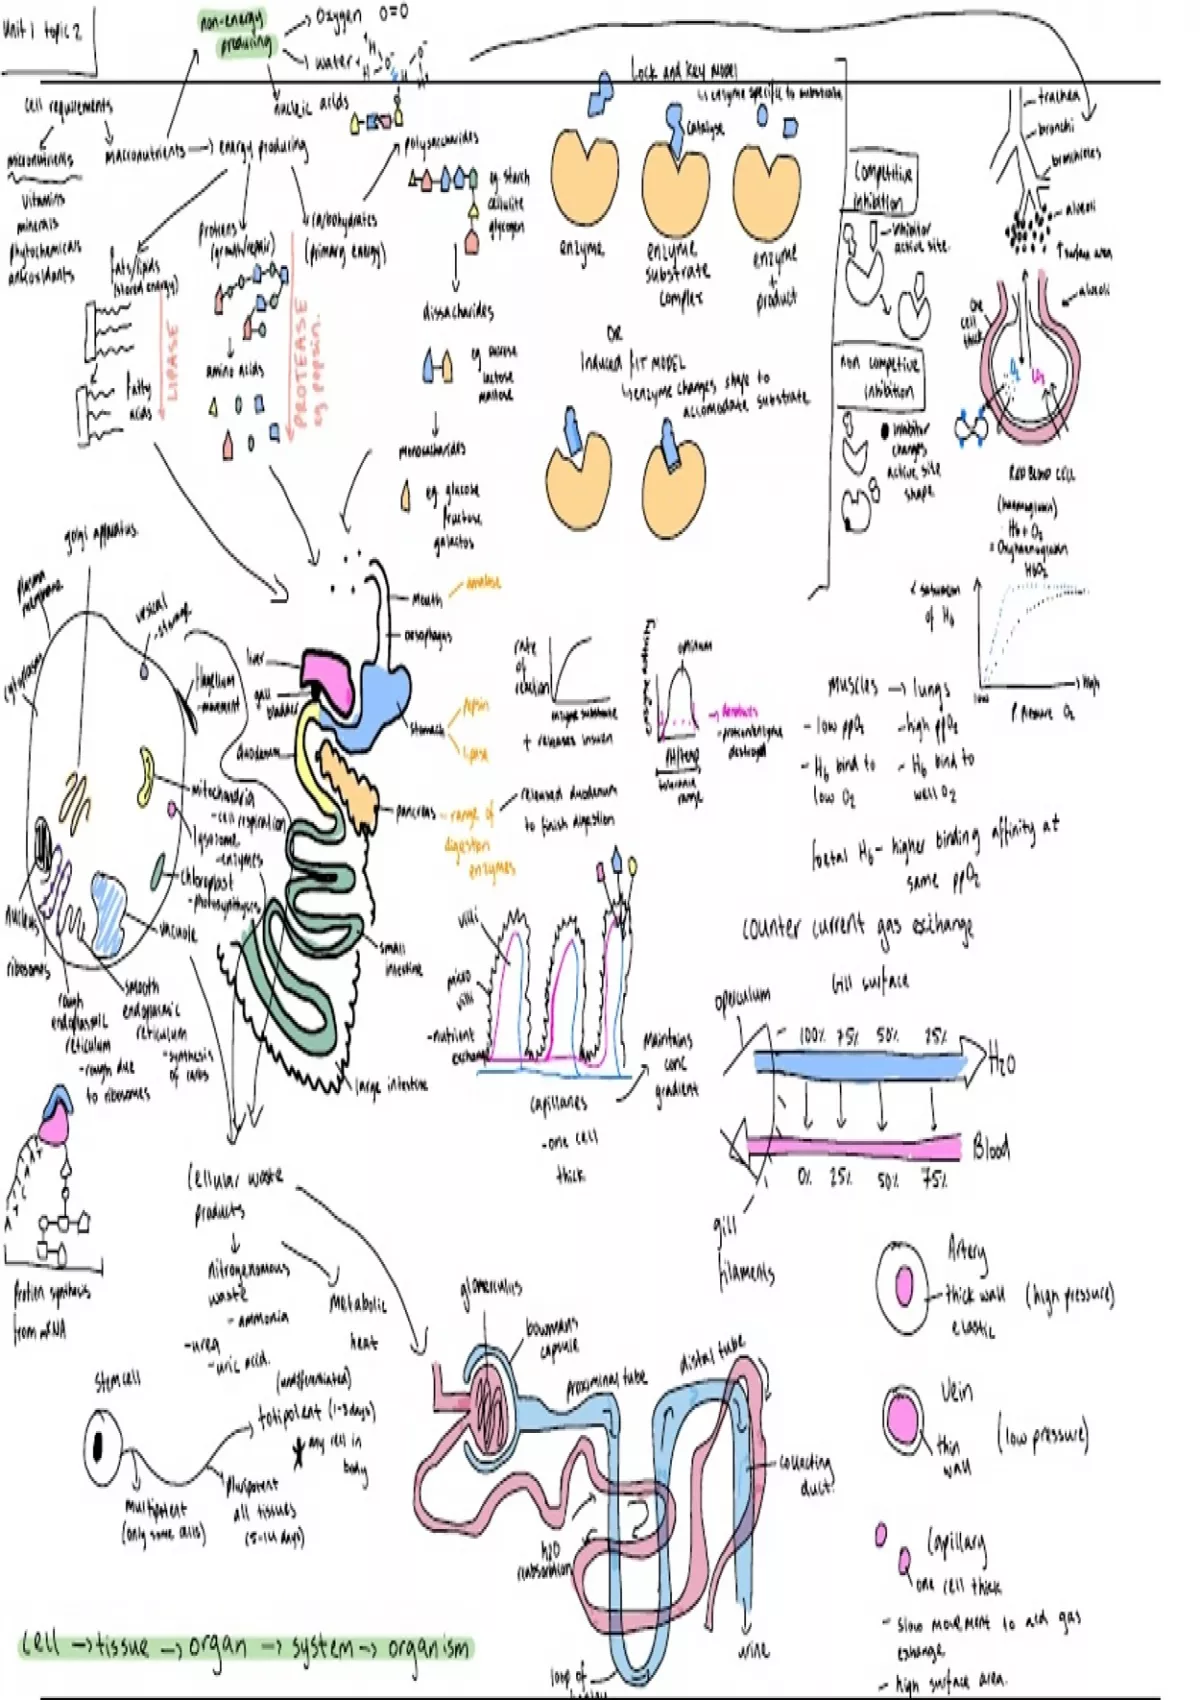 Unit 1 topic 2
non-energy
producing
Oxygen O=O
water
H
O
H
O
H
H
nucleic acids
cell requirements
micronutrients
vitamins
minerals
phytochemicals
antioxidants
macronutrients
energy producing
fats/lipids
(stored energy)
LIPASE
fatty
acids
proteins
(growth/repair)
amino acids
PROTEASE
eg popsin.
carbohydrates
(primary energy)
polysaccharides
eg. starch
cellulite
glycogen
dissacharides
eg sucrose
lactose
maltose
monosacharides
eg. glucose
fructose
galactos
Lock and key MODEL
enzyme specific to substrate
catalyse
enzyme
enzyme
substrate
complex
enzyme
+
product
OR
Induced fIT MODEL
enzyme changes shape to
accomodate substrate
competitive
inhibition
inhibitor
active site
non competitive
inhibition
inhibitor
changes
active site
shape
trachea
bronchi
bronchioles
alveoli
↑ surface area
alveoli
one
cell
thick
O2
CO2
RED BLOOD CELL
(haemoglobin)
Hb + O2
= Oxyhaemoglobin
HbO2
saturation
of Hb
low
high
P. Pressure O2
golgi apparatus
plasma
membrane
cytoplasm
vesical
-storage
flagellum
-movement
mitochondria
-cell respiration
lysosome
-enzymes
chloroplast
-photosynthysis
vacuole
nucleus
ribosomes
rough
endoplasmic
reticulum
-rough due
to ribosomes
smooth
endoplasmic
reticulum
-synthesis
of carbs
mouth
amalase
oesophagus
liver
gall
bladder
stomach
pepsin
lipase
duodenum
pancreas - range of
digestion
enzymes
released duodenum
to finish digestion
small
intestine
large intestine
rate
of
reaction
enzyme substrate
enzyme activity
optimum
pH/temp
tolerance
range
denatures
-protein/enzyme
destroyed
villi
micro
villi
-nutrient
exchange
capillaries
-one cell
thick.
maintains
conc
gradient
muscles → lungs
- low ppO2
- high ppO2
- Hb bind to
low O2
- Hb bind to
well O2
foetal Hb - higher binding affinity at
same ppO2
counter current gas exchange
Gill surface
operculum
100% 75% 50% 25%
H2O
Blood
0% 25% 50% 75%
gill
filaments
protien synthesis
from mRNA
cellular waste
products
nitrogenomous
waste
- ammonia
-urea
-uric acid.
metabolic
heat
stem cell
multipotent
(only some cells)
(undifferentiated)
totipotent (1-3days)
any cell in
body
pluripotent
all tissues
(5-14 days)
glomerculus
bowmans
capsule
proximinal tube
distal tube
collecting
duct
H2O
reabsorbtion
loop of
urine
Artery
thick wall (high pressure)
elastic
Vein
thin
wall
(low pressure)
Capillary
one cell thick
- slow movement to aid gas
exhange
- high surface area.
cell → tissue → organ → system → organism